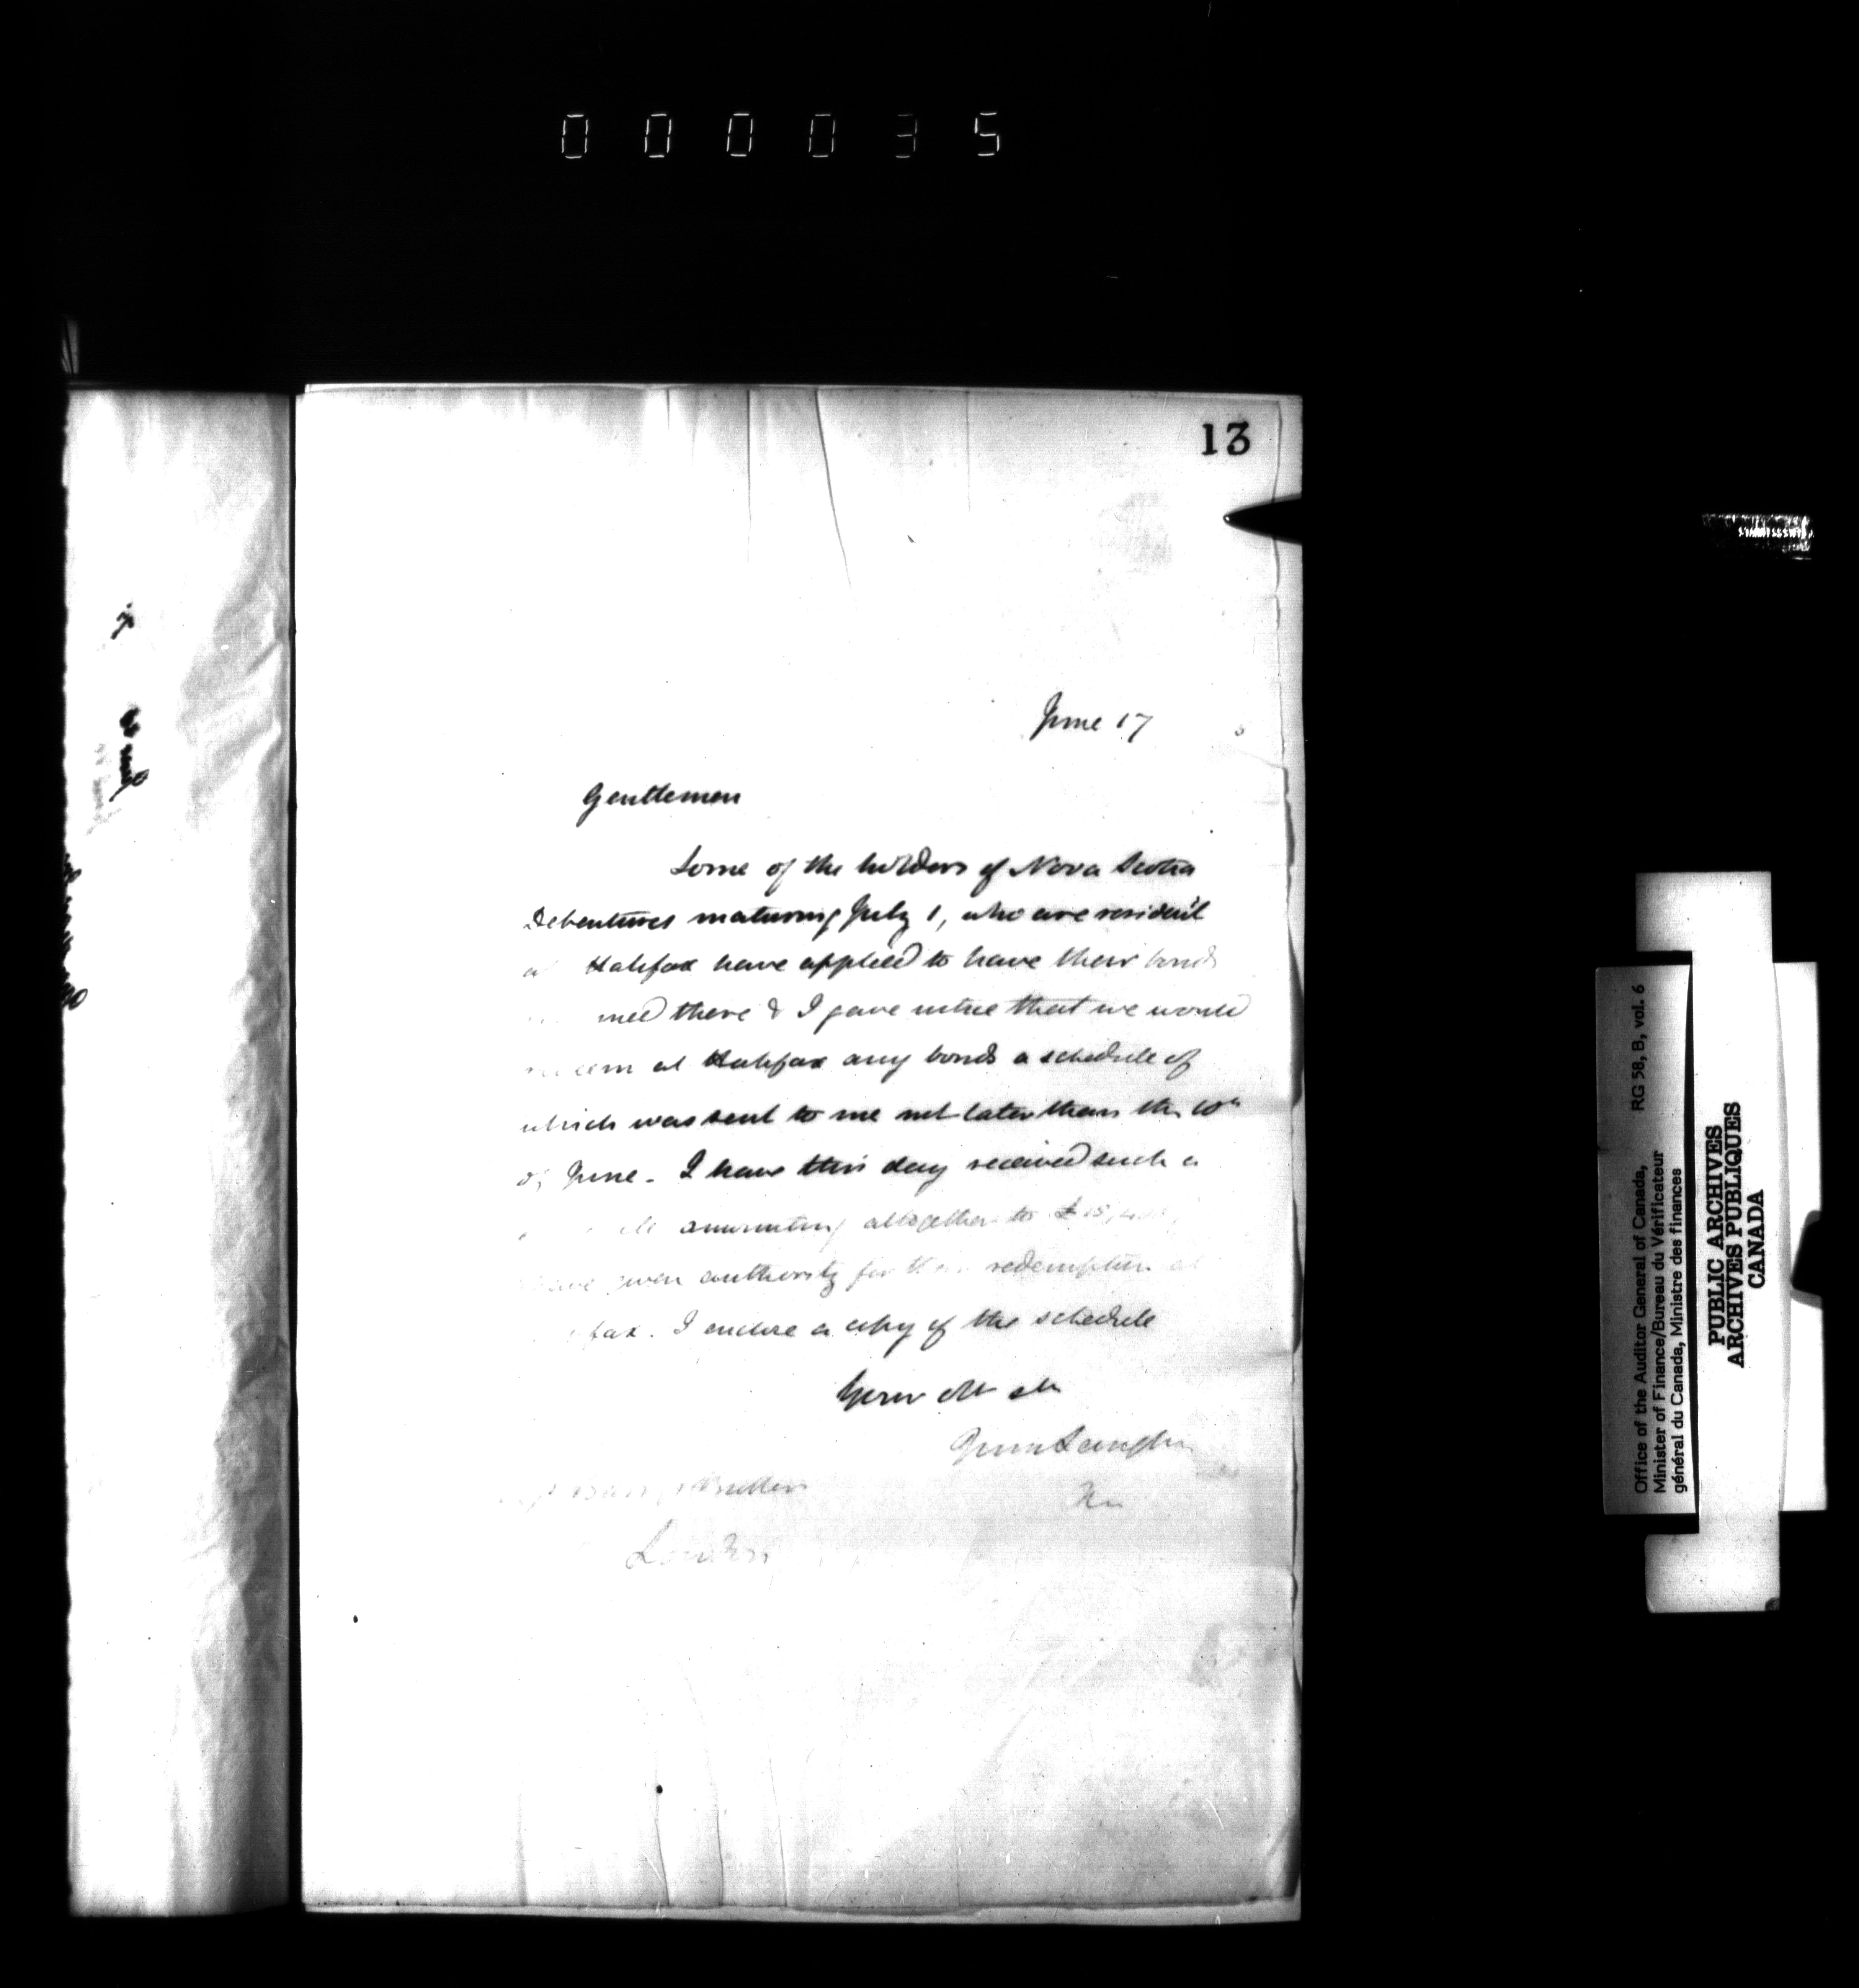 000035
13
June 17
Gentlemen
Some of the holders of Nova Scotia
Debentures maturing July 1, who are resident
at Halifax have applied to have their bonds
there & I gave notice that we would
redeem at Halifax any bonds a schedule of
which was sent to me not later than the 10th
of June - I have this day received such a
amounting altogether to £15,4
have given authority for their redemption at
fax. I enclose a copy of the schedule
London
Office of the Auditor General of Canada, RG 58, B, vol. 6
Minister of Finance/Bureau du Vérificateur
général du Canada, Ministre des finances
PUBLIC ARCHIVES
ARCHIVES PUBLIQUES
CANADA